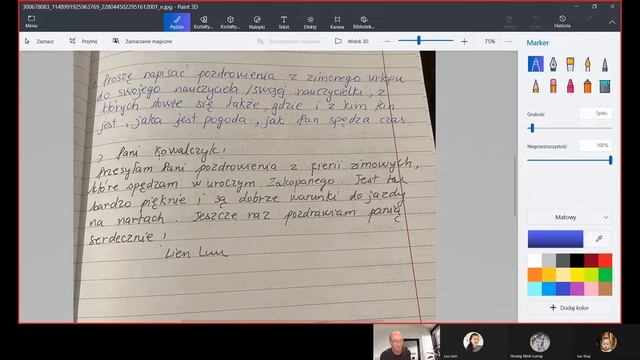 300678083_1148991925963769_2280445022951612001_n.jpg - Paint 3D
Menu
Pędzle
Kształty...
Kształty...
Nalepki
Tekst
Efekty
Kanwa
Bibliotek...
Historia
Zaznacz
Przytnij
Zaznaczanie magiczne
Widok 3D
75%
Marker
Grubość
5piks.
Nieprzezroczystość
100%
Matowy
Dodaj kolor
Proszę napisać pozdrowienia z zimonego urlopu
do swojego nauczyciela/swojej nauczycielki, z
których dowie się także, gdzie i z kim Pan
jest, jaka jest pogoda, jak Pan spędza czas.
Pani Kowalczyk!
Przesyłam Pani pozdrowienia z fierii zimowych,
które spędzam w uroczym Zakopanego. Jest tak
bardzo pięknie i są dobrze warunki do jazdy
na nartach. Jeszcze raz pozdrawiam panią
serdecznie!
Lien Luu
Luu Lien
Hoang Minh Luong
luu thuy